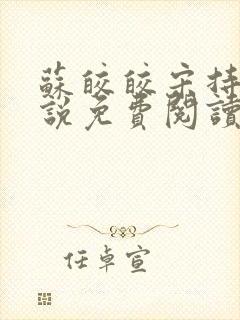 蘇皎皎宋持
說免費閱讀
任卓宣